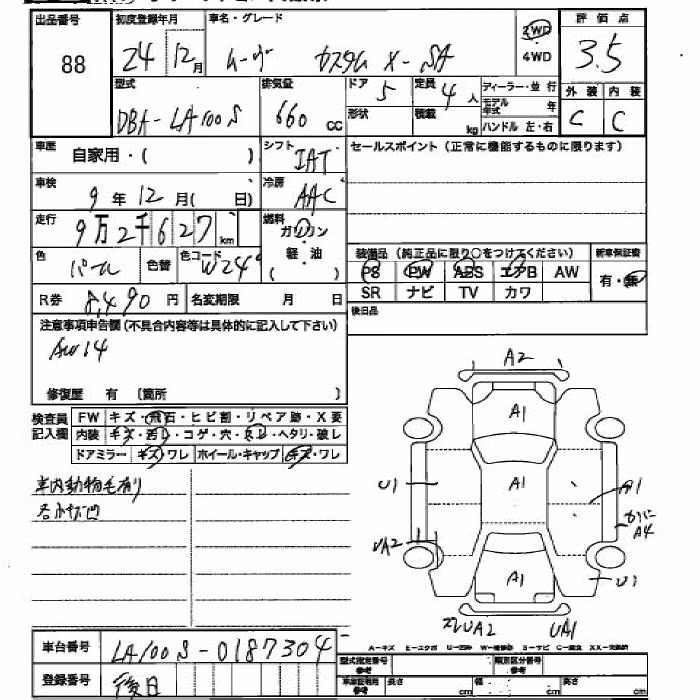 出品番号 初度登録年月 車名・グレード 評価点
88 24年12月 ムーヴ カスタム X-SA 2WD・4WD 3.5
型式 排気量 ドア 定員 ディーラー・並行 外装 内装
DBA-LA100S 660cc 5 4人 モデル年式 年 C C
形状 積載 kg ハンドル 左・右
車歴 自家用・( ) シフト IAT セールスポイント(正常に機能するものに限ります)
車検 9年12月(日) 冷房 AAC
走行 9万2千627km 燃料 ガソリン・軽油 ( )
色 パール 色替 色コード W24 装備品(純正品に限り○をつけてください) 新車保証書
PS PW ABS エアB AW 有・無
R券 8,490円 名変期限 月 日 SR ナビ TV カワ
注意事項申告欄(不具合内容等は具体的に記入して下さい) 後日品
AW14
修復歴 有 〔箇所 〕
検査員記入欄 FW キズ・飛石・ヒビ割・リペア跡・X要
内装 キズ・汚レ・コゲ・穴・スレ・ヘタリ・破レ
ドアミラー キズ・ワレ ホイール・キャップ キズ・ワレ
車内動物毛有り
A2
A1
U1 A1 A1
A4
UA2
A1 U1
UA2 UA1
A-キズ E-エクボ U-凹み W-補修跡 S-サビ C-腐食 XX-交換済
車台番号 LA100S-0187304
型式指定番号 参考 類別区分番号 参考
登録番号 後日 長さ cm 幅 cm 高さ cm